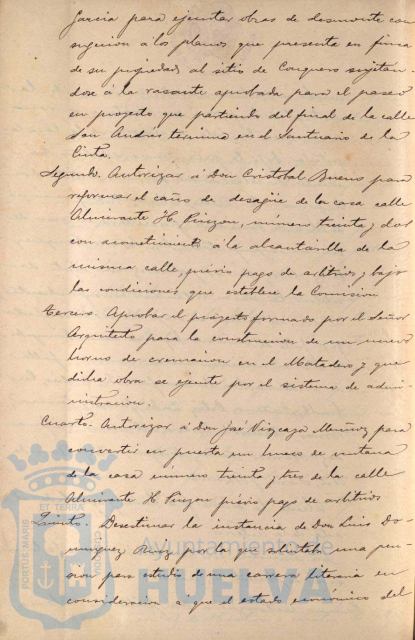 Garcia para ejecutar obras de desmonte con
sugecion á los planos que presenta en finca
de su propiedad al sitio de Conquero sujetan
dose á la rasante aprobada para el paseo
en proyecto que partiendo del final de la calle
San Andres termina en el Santuario de la
Cinta.
Segundo. Autorizar á Don Cristobal Bueno para
reformar el caño de desagüe de la casa calle
Almirante H. Pinzon, número treinta y dos
con acometimiento á la alcantarilla de la
misma calle, previo pago de arbitrios y bajo
las condiciones que establece la Comision
Tercero. Aprobar el proyecto formado por el Señor
Arquitecto para la construccion de un nuevo
horno de cremacion en el Matadero y que
dicha obra se ejecute por el sistema de admi-
nistracion.
Cuarto. Autorizar á Don José Vizcaya Muñoz para
convertir en puerta un hueco de ventana
de la casa número treinta y tres de la calle
Almirante H. Pinzon previo pago de arbitrios
Quinto. Desestimar la instancia de Don Luis Do
minguez Ruiz por la que solicitaba una pen-
sion para estudio de una carrera literaria en
consideracion a que el estado económico del
PORTUS MARIS
ET TERRAE
CUSTODIA
Ayuntamiento de
HUELVA